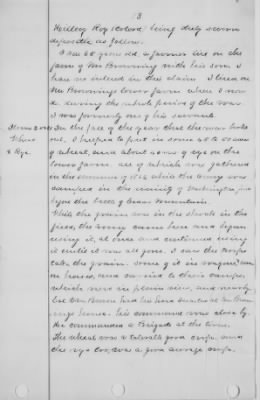 3
Hillery Roy (Colored) being duly sworn
deposeth as follow.
I am 60 year old, a farmer live on the
farm of Mr Browning with his son. I
have no interest in this claim. I lived on
Mr Brownings lower farm where I now
do during the whole period of the war.
I was formerly one of his servants.
Items 2 and In the fall of the year that the war broke
Wheat out, I helped to put in some 40 to 50 acres
& Rye of wheat, and about 10 acres of rye on the
lower farm all of which was gathered
in the summer of 1862 while the army was
camped in the vicinity of Washington, just
before the battle of Cedar Mountain.
While the grain was in the shock in the
field, the army came here and began
using it, at once and continued using
it until it was all gone. I saw the troops
take the grain. Some of it in wagons, some
on horses, and carried to their camps,
which were in plain view, and nearby
Col. Van Buren had his head quarters at Mr Brown-
ings house. his command was close by.
He commanded a Brigade at the time.
The wheat was a tolerable good crop and
the rye too, was a good average crop.